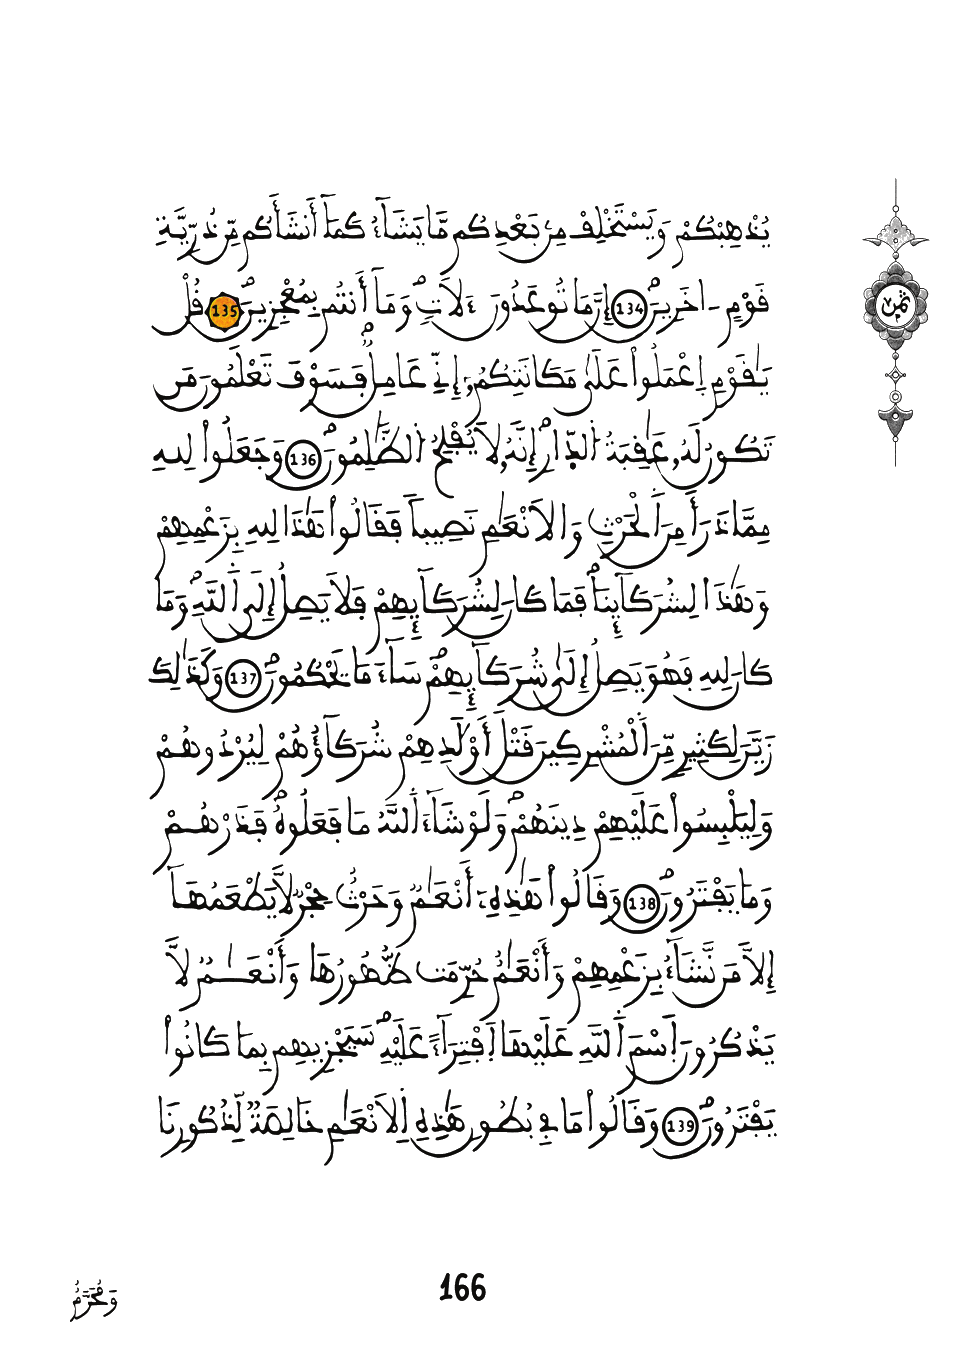 يُذْهِبْكُمْ وَيَسْتَخْلِفْ مِنۢ بَعْدِكُم مَّا يَشَآءُ كَمَآ أَنشَأَكُم مِّن ذُرِّيَّةِ
قَوْمٍ ـاخَرِينَ 134 إِنَّ مَا تُوعَدُونَ ءَلَاتٖ وَمَآ أَنتُم بِمُعْجِزِينَ 135 قُلْ
ثمن
يَٰقَوْمِ اِعْمَلُواْ عَلَىٰ مَكَانَتِكُمُۥٓ إِنِّے عَامِلٞ فَسَوْفَ تَعْلَمُونَ مَن
تَكُونُ لَهُۥ عَٰقِبَةُ اُلدّ۪ارِ إِنَّهُۥ لَا يُفْلِحُ اُلظَّٰلِمُونَ 136 وَجَعَلُواْ لِلهِ
مِمَّا ذَرَأَ مِنَ اَلْحَرْثِ وَالَانْعَٰمِ نَصِيباٗ فَقَالُواْ هَٰذَا لِلهِ بِزَعْمِهِمْ
وَهَٰذَا لِشُرَكَآئِنَا فَمَا كَانَ لِشُرَكَآئِهِمْ فَلَا يَصِلُ إِلَى اَللَّهِ وَمَا
كَانَ لِلهِ فَهُوَ يَصِلُ إِلَىٰ شُرَكَآئِهِمْ سَآءَ مَا يَحْكُمُونَ 137 وَكَذَٰلِكَ
زَيَّنَ لِكَثِيرٖ مِّنَ اَلْمُشْرِكِينَ قَتْلَ أَوْلَٰدِهِمْ شُرَكَآؤُهُمْ لِيُرْدُوهُمْ
وَلِيَلْبِسُواْ عَلَيْهِمْ دِينَهُمْ وَلَوْ شَآءَ اَللَّهُ مَا فَعَلُوهُ فَذَرْهُمْ
وَمَا يَفْتَرُونَ 138 وَقَالُواْ هَٰذِهِۦٓ أَنْعَٰمٞ وَحَرْثٌ حِجْرٞ لَّا يَطْعَمُهَآ
إِلَّا مَن نَّشَآءُ بِزَعْمِهِمْ وَأَنْعَٰمٌ حُرِّمَتْ ظُهُورُهَا وَأَنْعَٰمٞ لَّا
يَذْكُرُونَ اَسْمَ اَللَّهِ عَلَيْهَا اَفْتِرَآءً عَلَيْهِ سَيَجْزِيهِم بِمَا كَانُواْ
يَفْتَرُونَ 139 وَقَالُواْ مَا فِے بُطُونِ هَٰذِهِ اِلَانْعَٰمِ خَالِصَةٞ لِّذُكُورِنَا
وَمُحَرَّمٌ
166